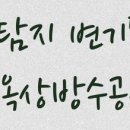 탐지 변기
옥상방수공